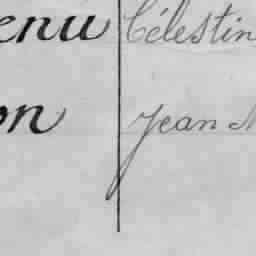 enu Célestin
on Jean M